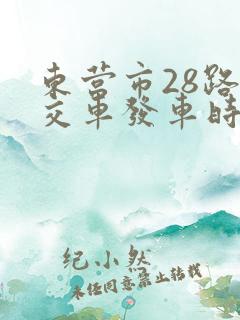 東营市28路
交車發車時
纪小然
未经同意禁止转载